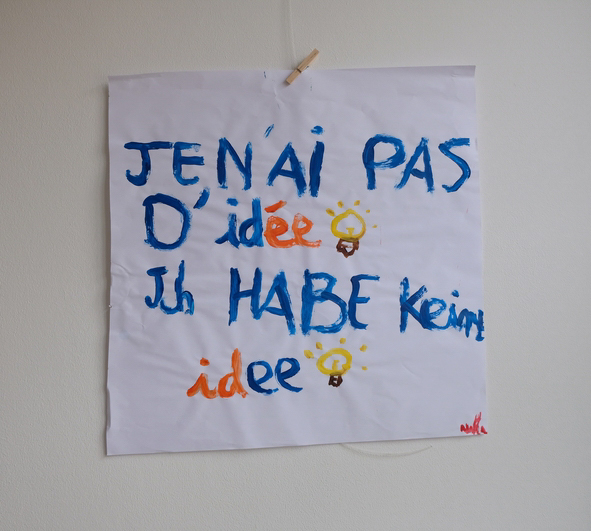 JE N'Ai PAS
D'idée
Ich HABE Kein
idee